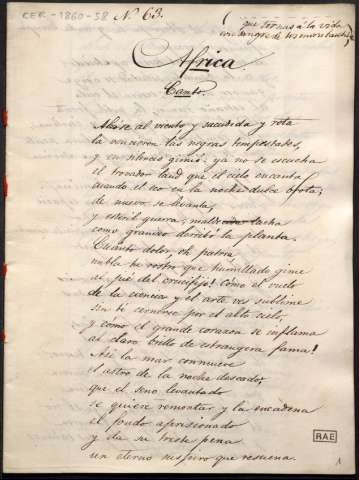 CER.-1860-58 Nº 63.
(que tornas á la vida
con sangre de tus
Africa.
Canto.
Alzóse al viento y sacudida y rota
la vencieron las negras tempestades,
y en silencio gimió: ya no se escucha
el trovador laud que el cielo encanta
cuando el eco en la noche dulce flota;
de nuevo se levanta,
y estéril guerra, lucha
como granizo derribó la planta.
Cuánto dolor, oh patria
nubla tu rostro que humillado gime
al pié del crucifijo! Cómo el vuelo
de la ciencia y el arte ves sublime
sin tí cernerse por el alto cielo,
y cómo el grande corazon se inflama
al claro brillo de estrangera fama!
Asi la mar conmueve
el astro de la noche
que el seno levantado
se quiere remontar y la encadena
el fondo aprisionado
y da su triste pena
un eterno suspiro que resuena.
RAE
1